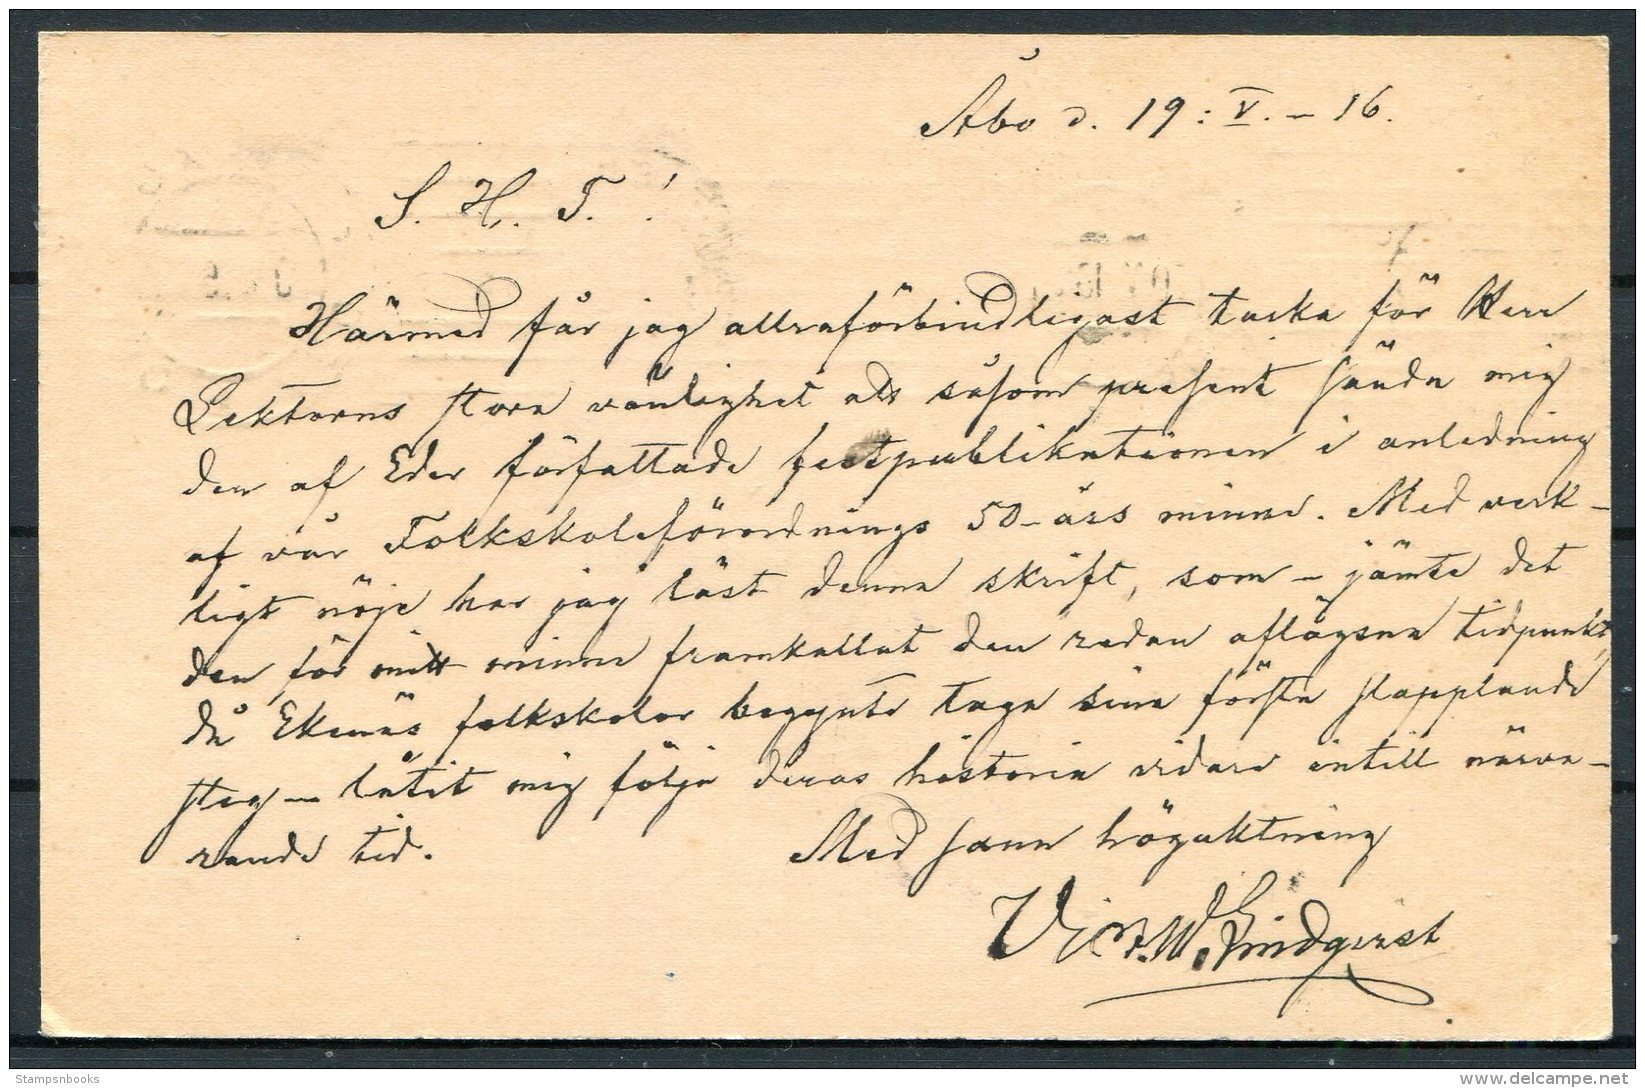 Åbo d. 19: V. – 16.
S. H. T.!
Härmed får jag allraförbindligast tacka för Herr
Lektorns stora vänlighet att såsom present sända mig
den af Eder författade festpublikationen i anledning
af vår Folkskoleförordnings 50-års minne. Med verk-
ligt nöje har jag läst denna skrift, som – jämte det
den för mitt minne framkallat den redan aflägsna tidpunkt,
då Ekenäs folkskolor begynte taga sina första stapplande
steg – låtit mig följa deras historia vidare intill närva-
rande tid.
Med sann högaktning
Vict. W. Lindqvist
Stampsnbooks
delcampe.net